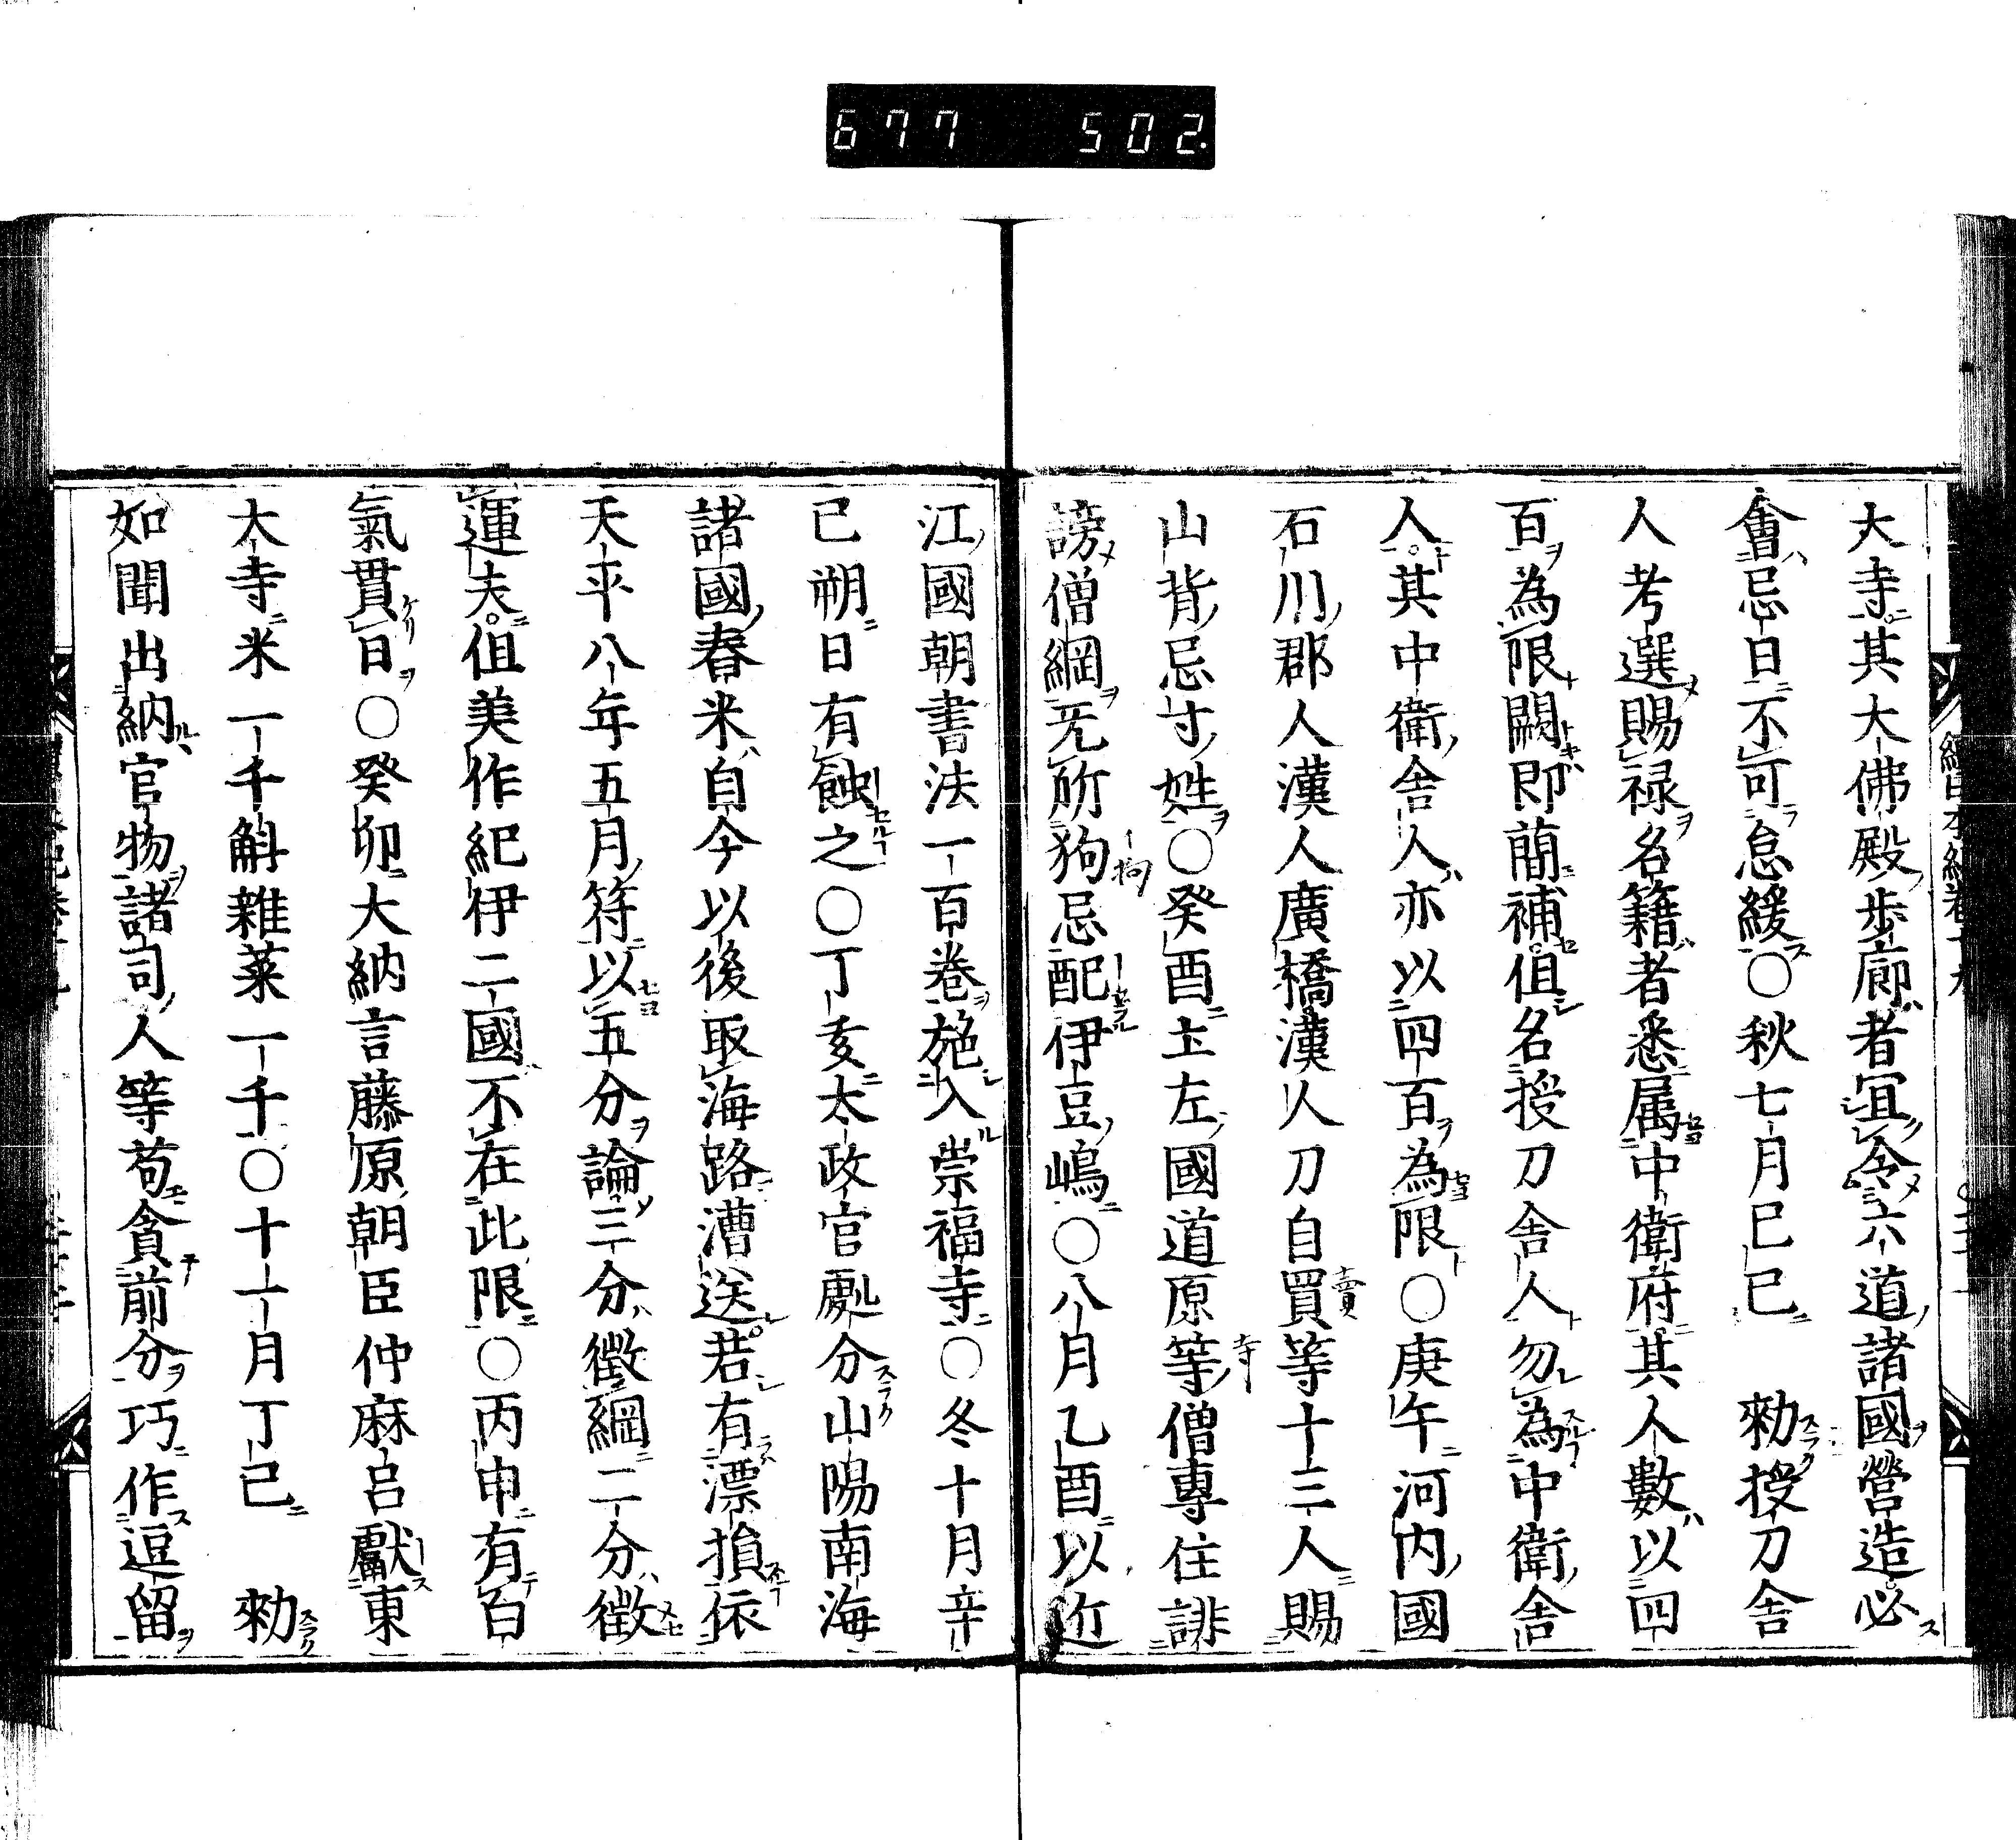 677 502.
大寺其大佛殿歩廊者宜令六道諸國營造必
會忌日不可怠緩○秋七月巳巳　勑授刀舎
人考選賜禄名籍者悉属中衛府其人數以四
百為限闕即簡補但名授刀舎人勿為中衛舎
人其中衛舎人亦以四百為限○庚午河内國
石川郡人漢人廣橋漢人刀自買等十三人賜
山背忌寸姓○癸酉土左國道原等僧專住誹
謗僧綱无所狗忌配伊豆嶋○八月乙酉以近
江國朝書法一百巻施入崇福寺○冬十月辛
已朔日有蝕之○丁亥太政官處分山陽南海
諸國舂米自今以後取海路漕送若有漂損依
天平八年五月符以五分論三分徵綱二分徵
運夫但美作紀伊二國不在此限○丙申有白
氣貫日○癸卯大納言藤原朝臣仲麻呂獻東
大寺米一千斛雜菜一千○十一月丁已　勑
如聞出納官物諸司人等苟貪前分巧作逗留